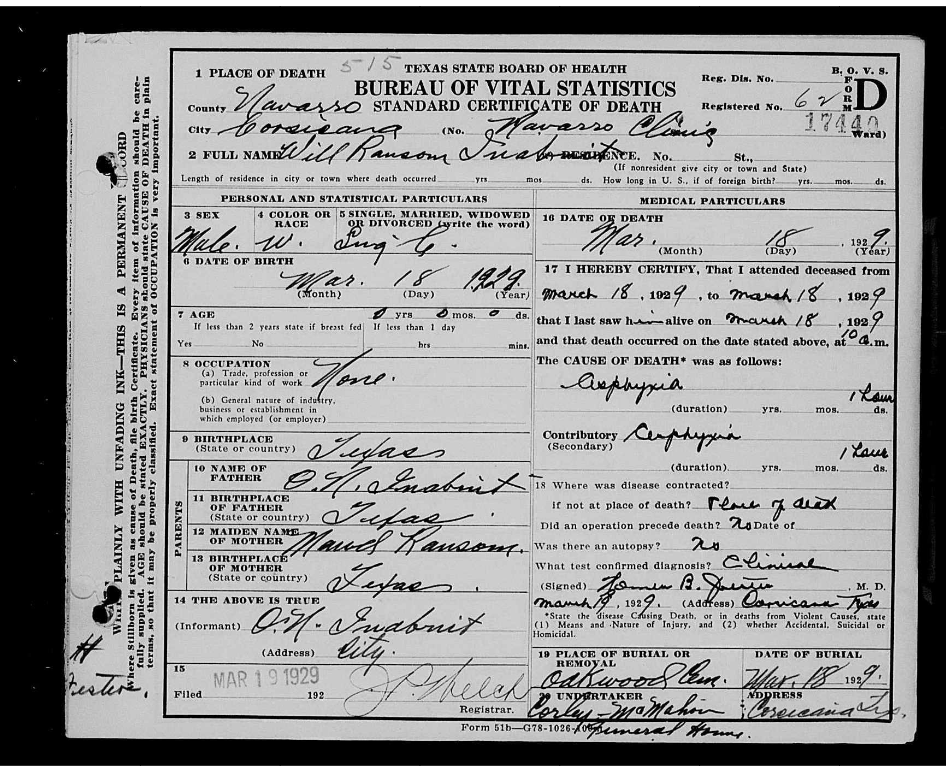 515
TEXAS STATE BOARD OF HEALTH
BUREAU OF VITAL STATISTICS
STANDARD CERTIFICATE OF DEATH
B. O. V. S.
FORM D
Reg. Dis. No.
Registered No. 62
17440
Ward)
1 PLACE OF DEATH
County Navarro
City Corsicana (No. Navarro Clinic
2 FULL NAME Will Ransom Inabnit RESIDENCE. No. St.,
(If nonresident give city or town and State)
Length of residence in city or town where death occurred yrs. mos. ds. How long in U. S., if of foreign birth? yrs. mos. ds.
PERSONAL AND STATISTICAL PARTICULARS
3 SEX
Male.
4 COLOR OR RACE
W.
5 SINGLE, MARRIED, WIDOWED
OR DIVORCED (write the word)
6 DATE OF BIRTH
Mar. 18 1929.
(Month) (Day) (Year)
7 AGE 0 yrs 0 mos. 0 ds.
If less than 2 years state if breast fed If less than 1 day
Yes No hrs mins.
8 OCCUPATION
(a) Trade, profession or
particular kind of work None.
(b) General nature of industry,
business or establishment in
which employed (or employer)
9 BIRTHPLACE
(State or country) Texas
PARENTS
10 NAME OF
FATHER O. N. Inabnit
11 BIRTHPLACE
OF FATHER
(State or country) Texas.
12 MAIDEN NAME
OF MOTHER Maud Ransom.
13 BIRTHPLACE
OF MOTHER
(State or country) Texas.
14 THE ABOVE IS TRUE
(Informant) O. N. Inabnit
(Address) City.
15
Filed MAR 19 1929 192
J P Welch
Registrar.
MEDICAL PARTICULARS
16 DATE OF DEATH
Mar. 18, 1929.
(Month) (Day) (Year)
17 I HEREBY CERTIFY, That I attended deceased from
March 18, 1929, to March 18, 1929
that I last saw him alive on March 18, 1929
and that death occurred on the date stated above, at 10 a.m.
The CAUSE OF DEATH* was as follows:
Asphyxia
1 Hour
(duration) yrs. mos. ds.
Contributory Asphyxia
(Secondary)
1 Hour
(duration) yrs. mos. ds.
18 Where was disease contracted?
if not at place of death? Place of death
Did an operation precede death? No Date of
Was there an autopsy? No
What test confirmed diagnosis? Clinical
(Signed) B. M. D.
March 19, 1929. (Address) Corsicana Texas
*State the disease Causing Death, or in deaths from Violent Causes, state
(1) Means and Nature of Injury, and (2) whether Accidental, Suicidal or
Homicidal.
19 PLACE OF BURIAL OR
REMOVAL
Oakwood Cem.
DATE OF BURIAL
Mar. 18 1929.
20 UNDERTAKER
Corley-McMahon
Funeral Home.
ADDRESS
Corsicana Tex.
Form 51b—G78-1026-
WRITE PLAINLY WITH UNFADING INK—THIS IS A PERMANENT RECORD
Where Stillborn is given as cause of Death, file birth Certificate. Every item of information should be care-
fully supplied. AGE should be stated EXACTLY. PHYSICIANS should state CAUSE OF DEATH in plain
terms, so that it may be properly classified. Exact statement of OCCUPATION is very important.